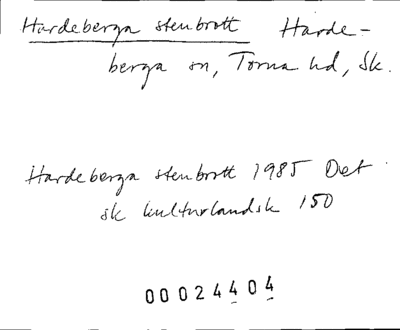 Hardeberga stenbrott Harde-
berga sn, Torna hd, Sk.
Hardeberga stenbrott 1985 Det
sk kulturlandsk 150
00024404